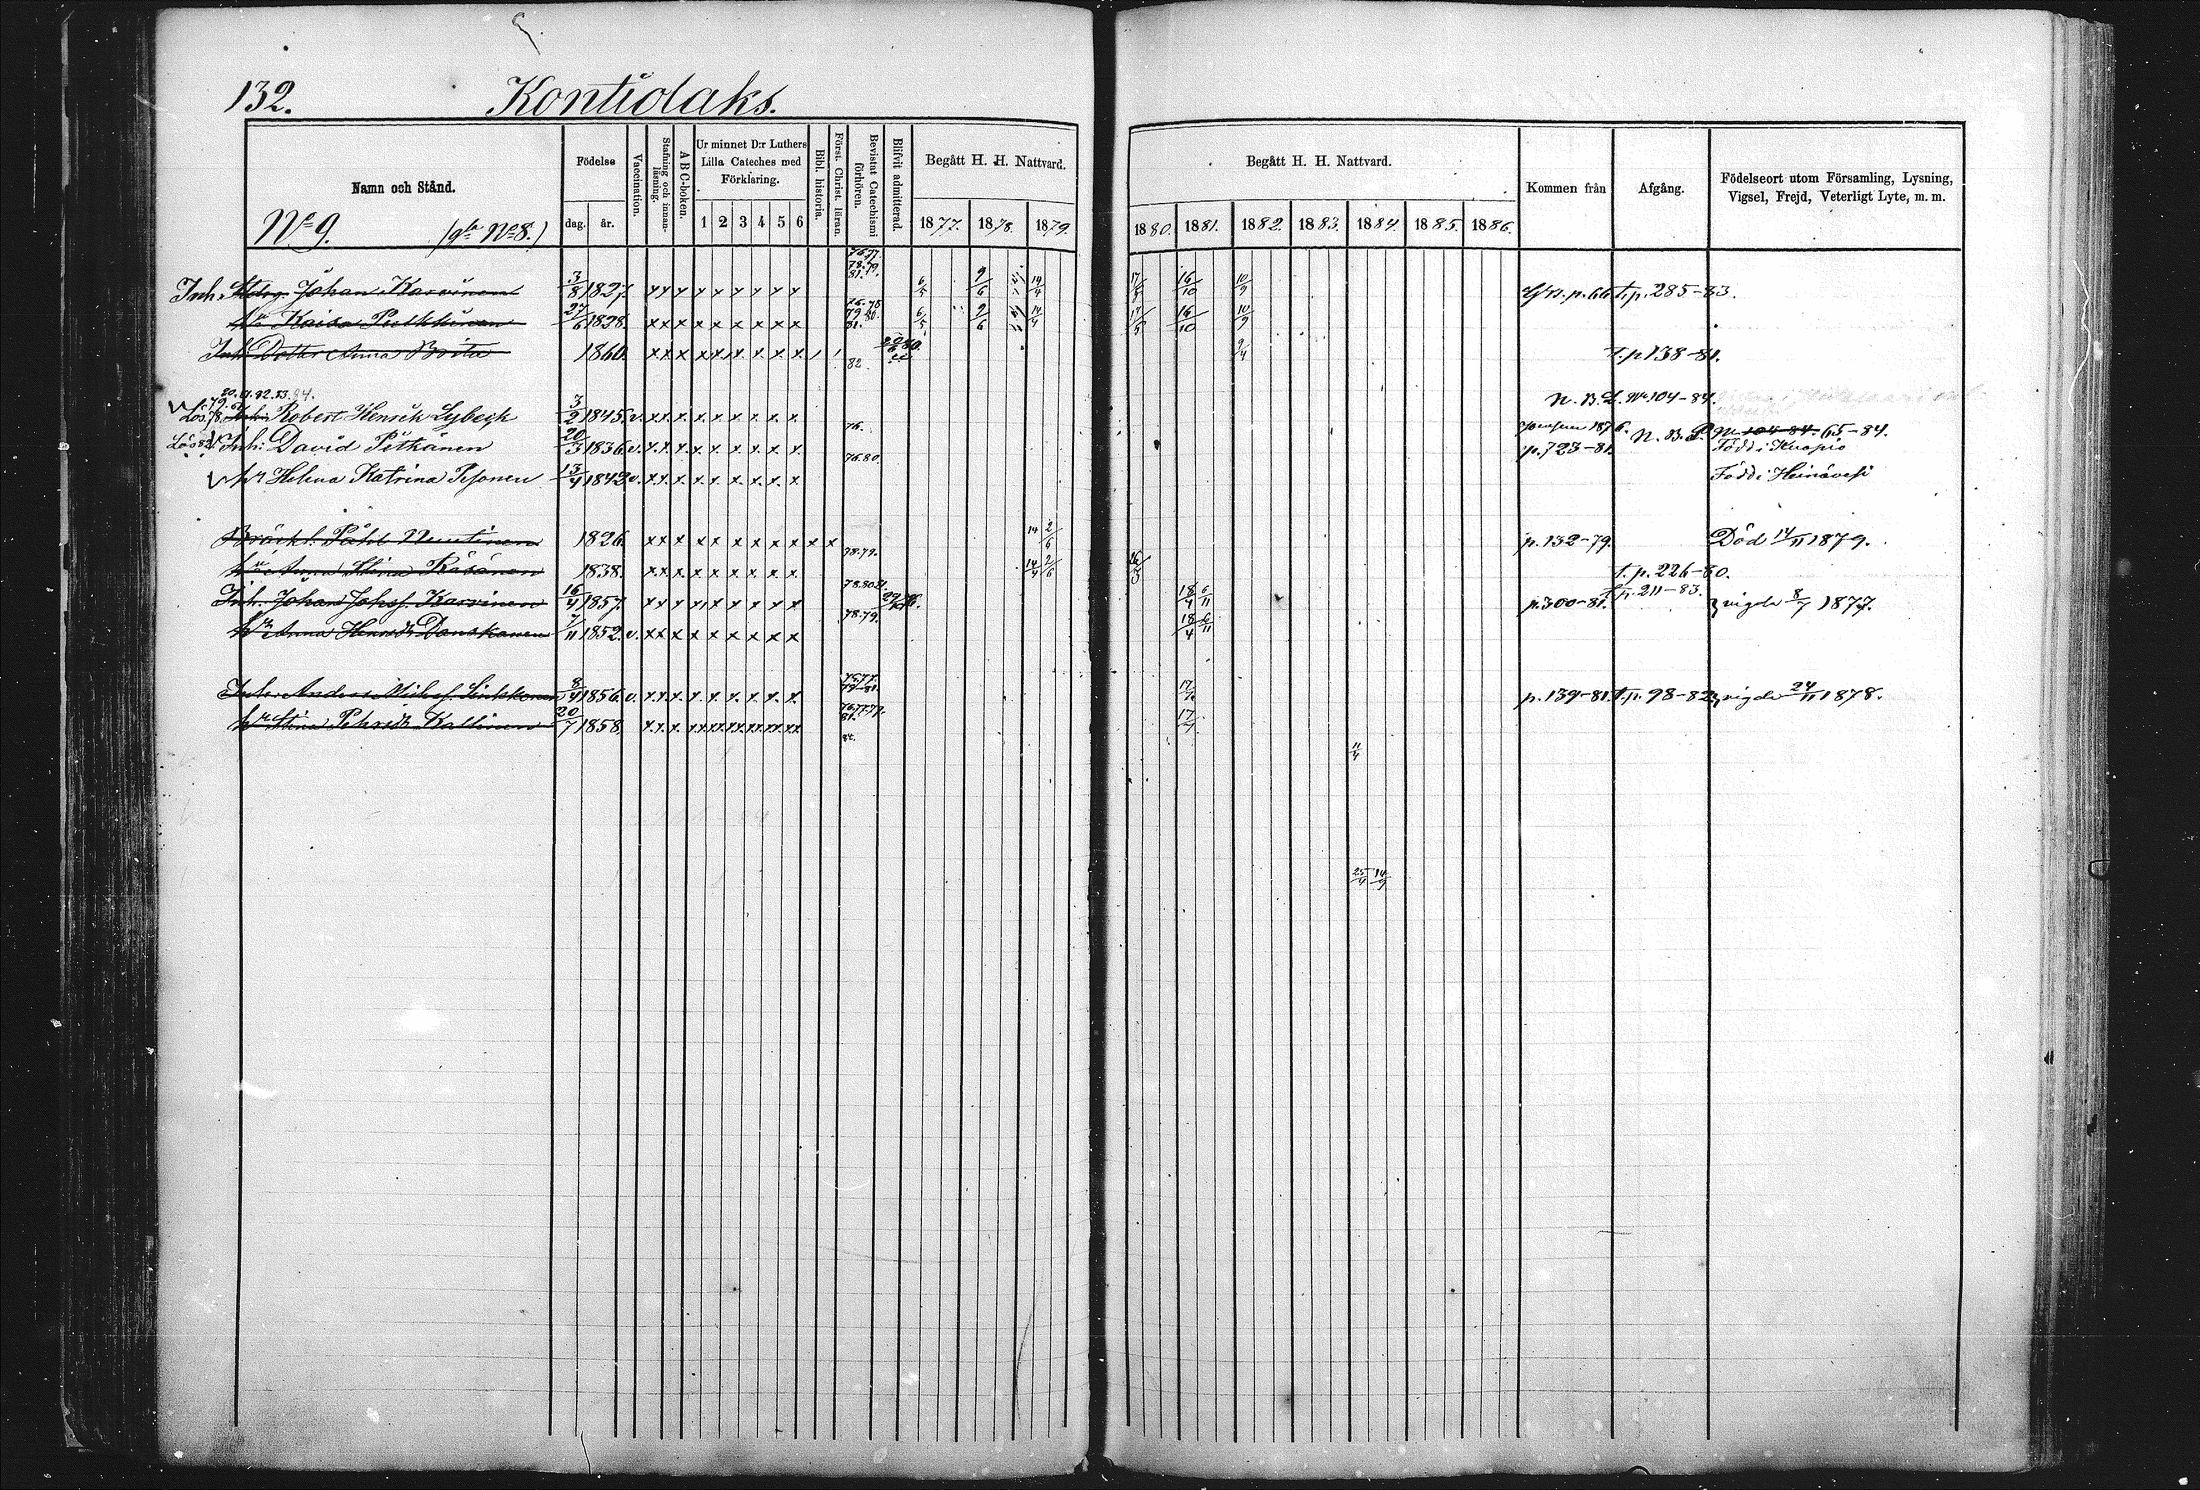 132. Kontiolaks.
Namn och Stånd. Födelse dag. år. Vaccination. Stafning och innanläsning. A B C-boken. Ur minnet D:r Luthers Lilla Cateches med Förklaring. 1 2 3 4 5 6 Bibl. historia. Först. Christ. läran. Bevistat Catechismi förhören. Blifvit admitterad. Begått H. H. Nattvard. 1877. 1878. 1879.
Begått H. H. Nattvard. 1880. 1881. 1882. 1883. 1884. 1885. 1886. Kommen från Afgång. Födelseort utom Församling, Lysning, Vigsel, Frejd, Veterligt Lyte, m. m.
No 9. No 8.)
Inh. Johan Karvinen 3/8 1827. x x x x x x x x x 6/5 9/6 14/4 17/5 16/10 10/9 p. 66 t. p. 285-83.
hu Kaisa Pulkkinen 27/6 1828. x x x x x x x x x 6/5 9/6 14/4 17/5 16/10 10/9
Inh. Dotter Anna Brita 1860. x x x x x x x x x 82 9/4 t. p. 138-81.
80. 81. 82. 83. 84.
Lös. 78. 79. Inh. Robert Henrik Lybeck 3/2 1845. v. x x x x x x x x x 76. N. B. L. No 104-84.
Lös 82 Inh: David Pitkänen 20/3 1836. v. x x x x x x x x x 76.80. p. 723-81. N. B. L. No 104-84. 65-84. Född i Kuopio
hu Helena Katrina Pesonen 13/4 1842 v. x x x x x x x x x Född i Heinävesi
Påhl Nuutinen 1826. x x x x x x x x x x x 78.79. 14 2/6 p. 132-79. Död 14/11 1879.
hu Anna Stina Räsänen 1838. x x x x x x x x x 14/4 2/6 16/3 t. p. 226-80.
Inh. Johan Johss. Karvinen 16/4 1857. x x x x x x x x x 18/4 6/11 p. 300-81. t. p. 211-83. vigde 8/7 1877.
hu Anna Henrikdr Danskanen 7/11 1852. v. x x x x x x x x x 78.79. 18/4 6/11
Inh. Anders Michelss. Sinkkonen 8/4 1856. v. x x x x x x x x x 17/4 p. 139-81. t. p. 98-82. vigde 24/11 1878.
hu Stina Pehrsdr Kallinen 20/7 1858. x x x xx xx xx xx xx xx 17/4
84. 11/4
25/4 14/9